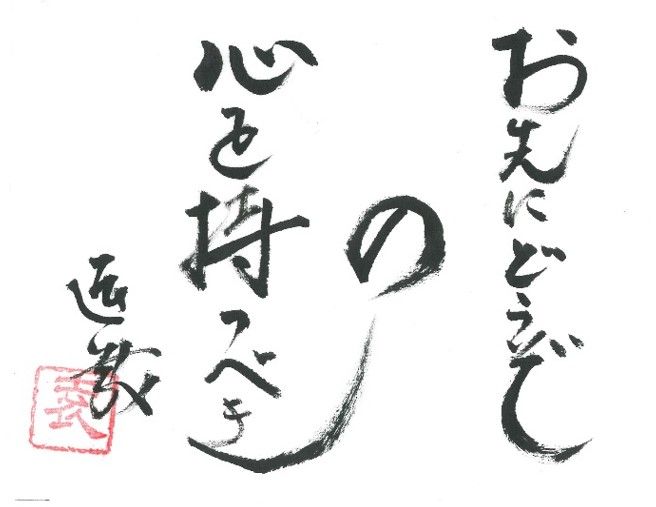 お先にどうぞ
の
心を持つべき